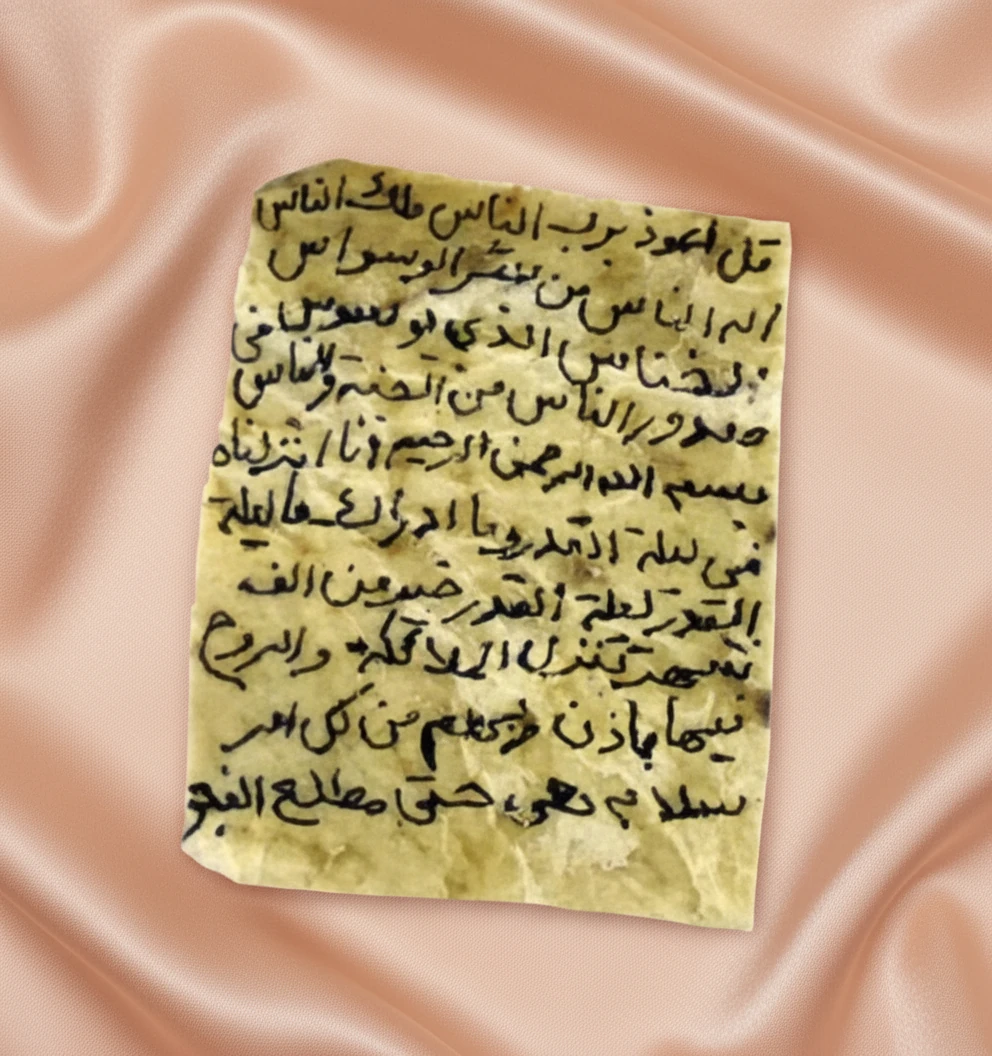 قل اعوذ برب الناس ملك الناس
اله الناس من شر الوسواس
الخناس الذي يوسوس في
صدور الناس من الجنة والناس
بسم الله الرحمن الرحيم انا انزلناه
في ليلة القدر وما ادراك ما ليلة
القدر ليلة القدر خير من الف
شهر تنزل الملائكة والروح
فيها باذن ربهم من كل امر
سلام هي حتى مطلع الفجر